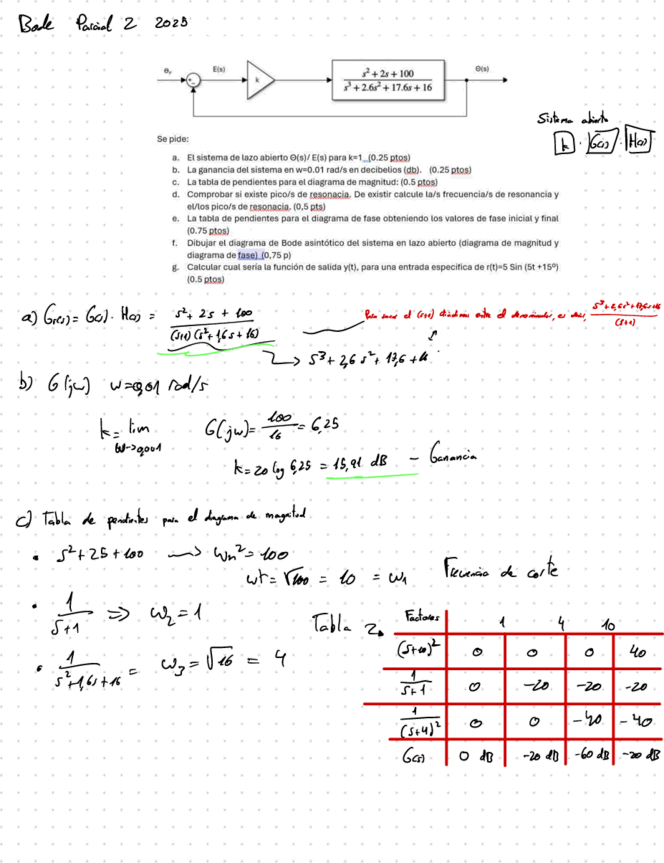 Bode Parcial 2 2025
θr E(s) k s² + 2s + 100 / s³ + 2.6s² + 17.6s + 16 Θ(s)
Sistema abierto
k · G(s) · H(s)
Se pide:
a. El sistema de lazo abierto Θ(s)/ E(s) para k=1 (0.25 ptos)
b. La ganancia del sistema en w=0.01 rad/s en decibelios (db). (0.25 ptos)
c. La tabla de pendientes para el diagrama de magnitud: (0.5 ptos)
d. Comprobar si existe pico/s de resonacia. De existir calcule la/s frecuencia/s de resonancia y
el/los pico/s de resonacia. (0,5 pts)
e. La tabla de pendientes para el diagrama de fase obteniendo los valores de fase inicial y final
(0.75 ptos)
f. Dibujar el diagrama de Bode asintótico del sistema en lazo abierto (diagrama de magnitud y
diagrama de fase) (0,75 p)
g. Calcular cual sería la función de salida y(t), para una entrada especifica de r(t)=5 Sin (5t +15º)
(0.5 ptos)
a) G(s) = G(s) · H(s) = s² + 2s + 100 / (s+1)(s² + 1,6s + 16)
Para sacar el (s+1) dividimos entre el denominador, es decir, s³+2,6s²+17,6s+16 / (s+1)
s³ + 2,6 s² + 17,6 + 16
s
b) G(jω) ω=0,01 rad/s
k = lim ω→0,001 G(jω) = 100/16 = 6,25
k = 20 log 6,25 = 15,91 dB – Ganancia
c) Tabla de pendientes para el diagrama de magnitud
• s² + 2s + 100 → ωn² = 100
ωr = √100 = 10 = ω1 Frecuencia de corte
• 1/(s+1) ⇒ ω2 = 1
• 1/(s²+1,6s+16) = ω3 = √16 = 4
Tabla 2.
Factores 1 4 10
(s+10)² 0 0 0 40
1/(s+1) 0 -20 -20 -20
1/(s+4)² 0 0 -40 -40
G(s) 0 dB -20 dB -60 dB -20 dB